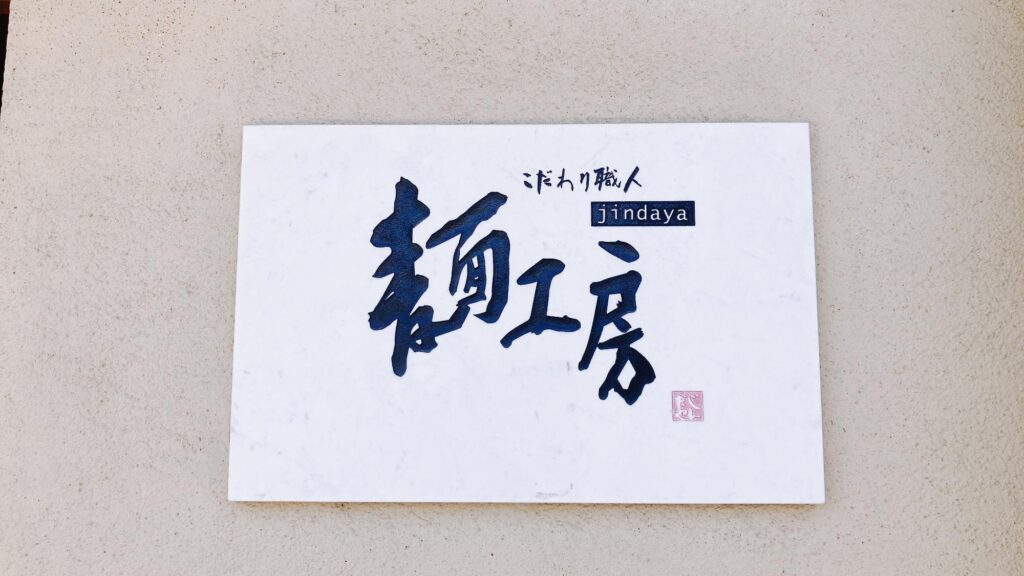 こだわり職人
jindaya
麺工房